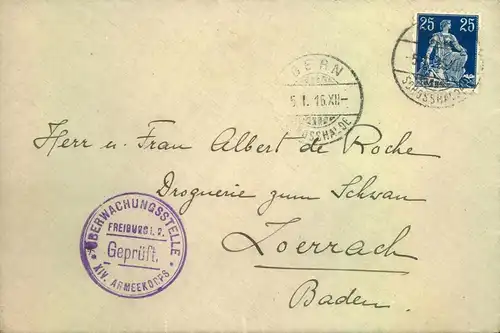 25 25
BERN
5.I.16.XII-
SCHOSSHALDE
Herr u. Frau Albert de Roche
Droguerie zum Schwan
Loerrach
Baden.
ÜBERWACHUNGSSTELLE
FREIBURG i. B.
Geprüft.
XIV. ARMEEKORPS